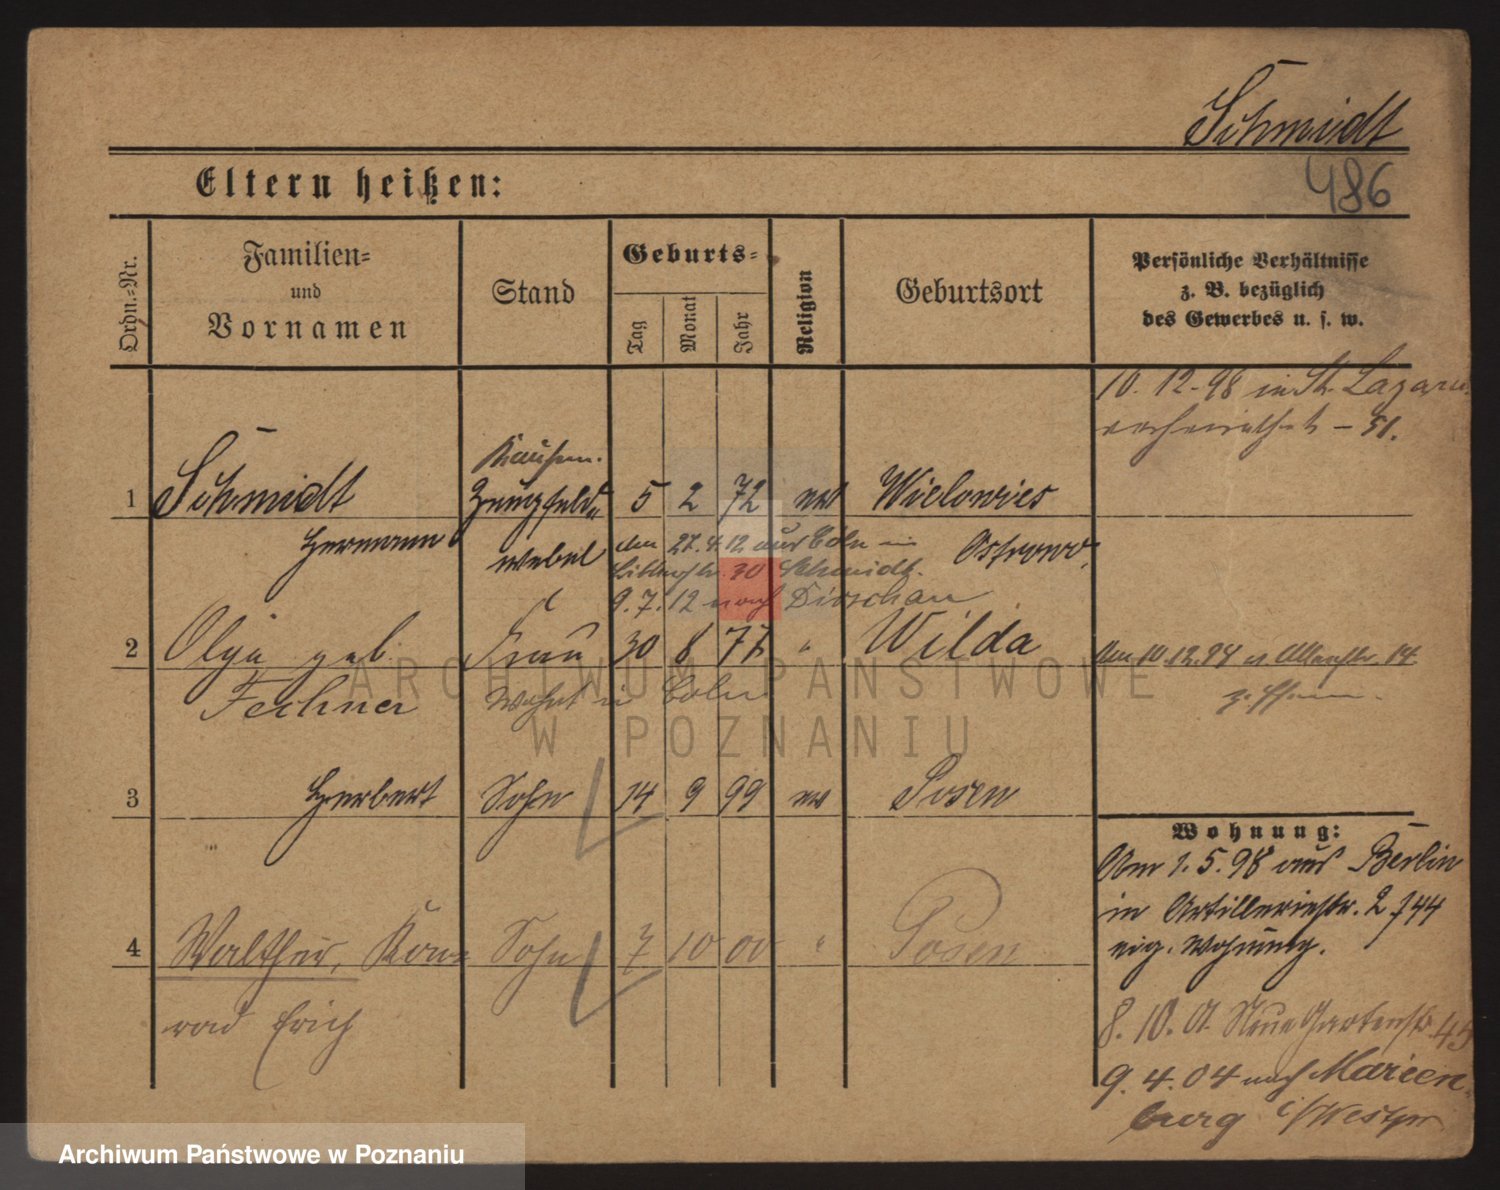 Schmidt
486
Eltern heißen:
Ordn.-Nr.
Familien-
und
Vornamen
Stand
Geburts-
Tag
Monat
Jahr
Religion
Geburtsort
Persönliche Verhältnisse
z. B. bezüglich
des Gewerbes u. s. w.
10. 12. 98 in St. Lazarus
verheirathet - 51.
1 Schmidt Zeugfeld- 5 2 72 ev Wielowies
Hermann webel Ostrowo,
den 27. 4. 12 aus Cöln in
30 Schmidt.
9. 7. 12 nach Dirschau
2 Olga geb. Frau 30 8 77 " Wilda
Fechner Wohnt in Cöln
3 Herbert Sohn 14 9 99 ev Posen
4 Walther, Kon- Sohn 7 10 00 " Posen
rad Erich
Wohnung:
Am 1. 5. 98 aus Berlin
in Artilleriestr. 2
eig. Wohnung.
8. 10. 01 Neue Gartenstr. 45
9. 4. 04 nach Marien-
burg i/Westpr
ARCHIWUM PAŃSTWOWE
W POZNANIU
Archiwum Państwowe w Poznaniu